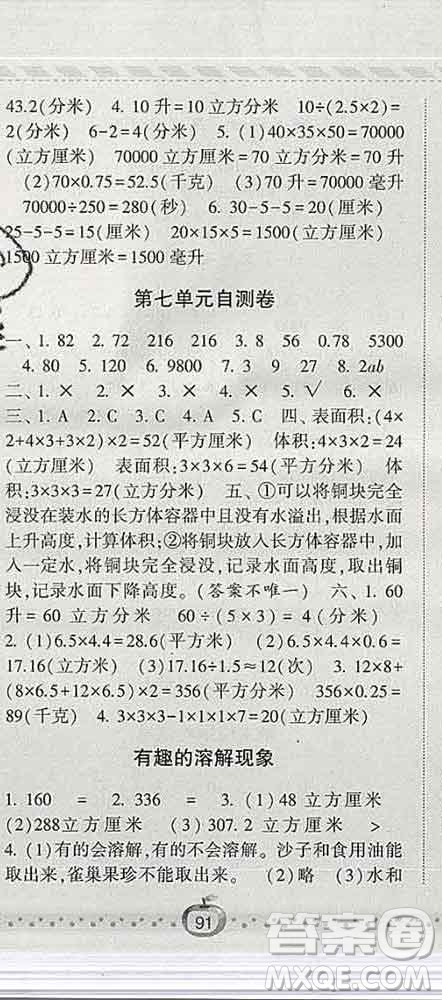 43.2(分米)　4. 10升=10立方分米　10÷(2.5×2)=
2(分米)　6-2=4(分米)　5. (1)40×35×50=70000
(立方厘米)　70000立方厘米=70立方分米=70升
(2)70×0.75=52.5(千克)　(3)70升=70000毫升
70000÷250=280(秒)　6. 30-5-5=20(厘米)
25-5-5=15(厘米)　20×15×5=1500(立方厘米)
1500立方厘米=1500毫升
第七单元自测卷
一、1. 82　2. 72　216　216　3. 8　56　0.78　5300
4. 80　5. 120　6. 9800　7. 3　9　27　8. 2ab
二、1. ×　2. ×　3. ×　4. ×　5. √　6. ×
三、1. A　2. C　3. B　4. A　5. C　四、表面积:(4×
2+4×3+3×2)×2=52(平方厘米)　体积:4×3×2=24
(立方厘米)　表面积:3×3×6=54(平方厘米)　体
积:3×3×3=27(立方厘米)　五、①可以将铜块完全
浸没在装水的长方体容器中且没有水溢出,根据水面
上升高度,计算体积;②将铜块放入长方体容器中,加
入一定水,将铜块完全浸没,记录水面高度,取出铜
块,记录水面下降高度。(答案不唯一)　六、1. 60
升=60立方分米　60÷(5×3)=4(分米)
2. (1)6.5×4.4=28.6(平方米)　(2)6.5×4.4×0.6=
17.16(立方米)　(3)17.16÷1.5≈12(次)　3. 12×8+
(8×6.5+12×6.5)×2=356(平方分米)　356×0.25=
89(千克)　4. 3×3×3-1×1×1×7=20(立方厘米)
有趣的溶解现象
1. 160　=　2. 336　=　3. (1)48立方厘米
(2)288立方厘米　(3)307.2立方厘米　>
4. (1)有的会溶解,有的不会溶解。沙子和食用油能
取出来,雀巢果珍不能取出来。　(2)略　(3)水和
91
答案圈
MXQE.COM